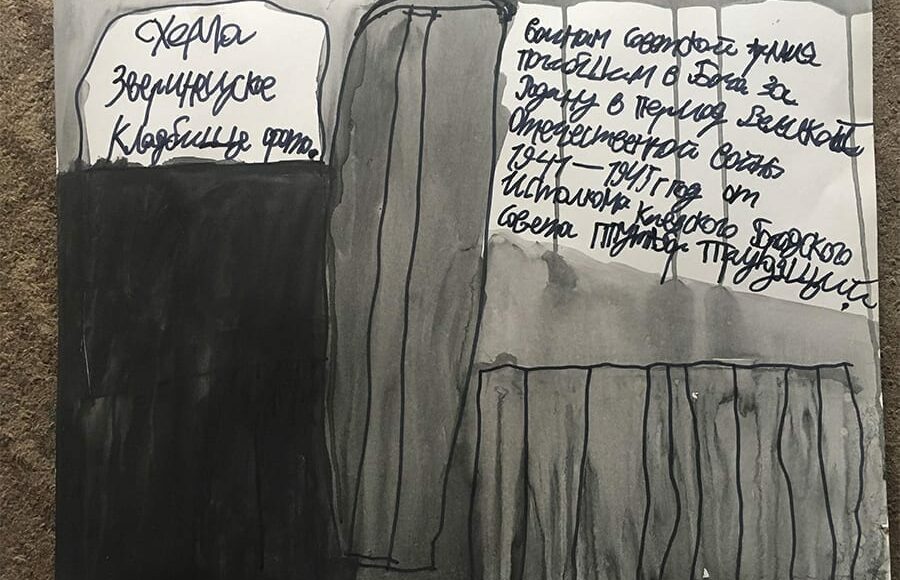 схема
Зверинецуское
Кладбище фото.
воинам Советской Армия
погибшим в Боях за
Родину в период Великой
Отечественной войны
1941—1945г год от
Исполкома Киевского Городского
совета Трудящий.